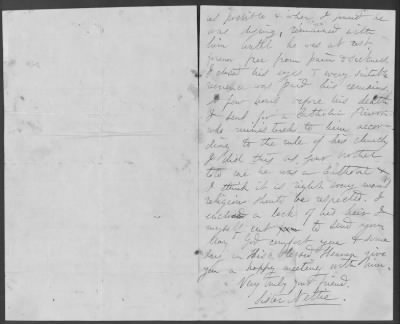 as possible & when I must he
was dying, remained with
him until he was at rest
free from pain & sickness
I closed his eyes & every suitable
reverence was paid his remains,
a few hours before his death
I send for a Catholic Priest
who ministered to him accor-
ding to the rule of his church,
I did this as your brother
told me he was a Catholic &
I think it is right every man's
religion should be respected, I
enclosed a lock of his hair I
myself cut to send you,
May God comfort you & some
day in His Blessed Heaven give
you a happy meeting with him.
Very truly your friend.
Sister Nettie.